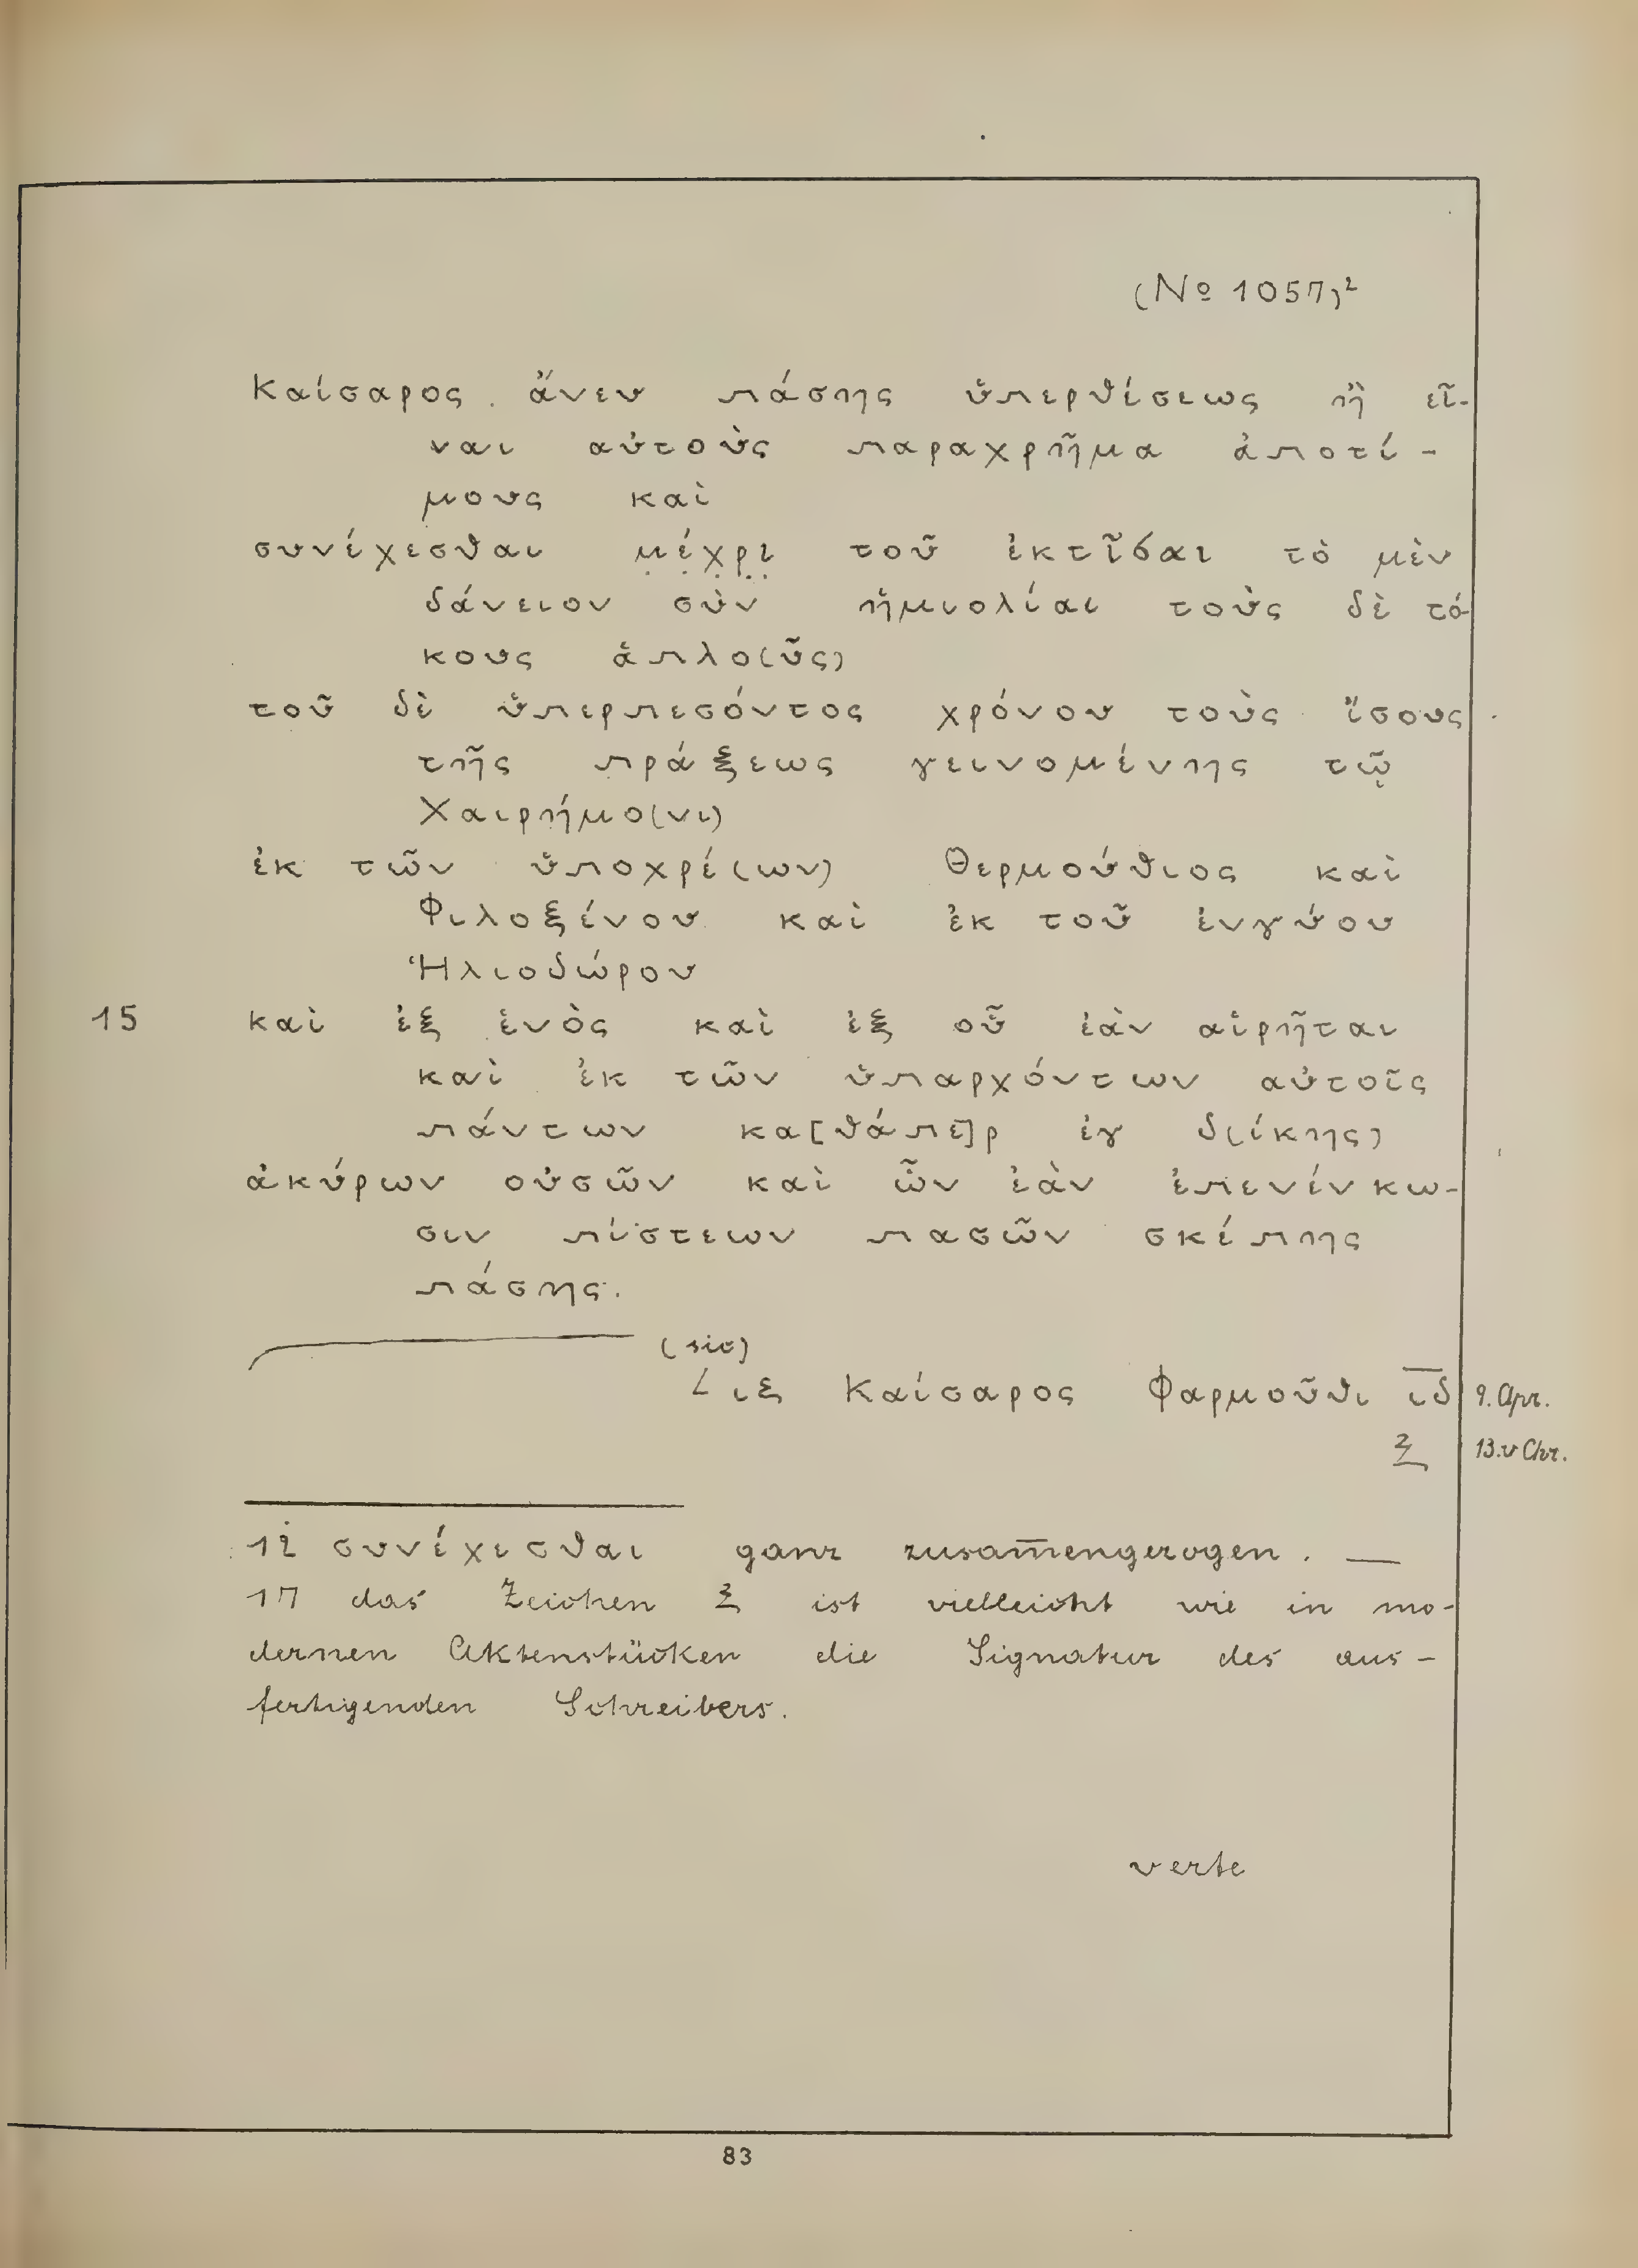 (No 1057)²
Καίσαρος ἄνευ πάσης ὑπερθέσεως ἢ εἶ-
ναι αὐτοὺς παραχρῆμα ἀποτί-
μους καὶ
συνέχεσθαι μ̣έ̣χ̣ρ̣ι̣ τοῦ ἐκτῖσαι τὸ μὲν
δάνειον σὺν ἡμιολίαι τοὺς δὲ τό-
κους ἁπλο(ῦς)
τοῦ δὲ ὑπερπεσόντος χρόνου τοὺς ἴσους
τῆς πράξεως γεινομένης τῷ
Χαιρήμο(νι)
ἐκ τῶν ὑποχρέ(ων) Θερμούθιος καὶ
Φιλοξένου καὶ ἐκ τοῦ ἐνγύου
Ἡλιοδώρου
15 καὶ ἐξ ἑνὸς καὶ ἐξ οὗ ἐὰν αἱρῆται
καὶ ἐκ τῶν ὑπαρχόντων αὐτοῖς
πάντων κα[θάπε]ρ ἐγ δ(ίκης)
ἀκύρων οὐσῶν καὶ ὧν ἐὰν ἐπενένκω-
σιν πίστεων πασῶν σκέπης
πάσης.
(sic)
L ιξ Καίσαρος Φαρμοῦθι ι̅δ̅ 9. Apr.
13. v Chr.
12 συνέχεσθαι ganz zusam̅engezogen. —
17 das Zeichen ist vielleicht wie in mo-
dernen Aktenstücken die Signatur des aus-
fertigenden Schreibers.
verte
83